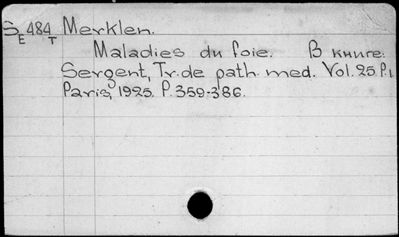 S E 484 T Merklen.
Maladies du foie. В книге:
Sergent, Tr. de path. med. Vol. 25. P. 1.
Paris, 1925. P. 359-386.